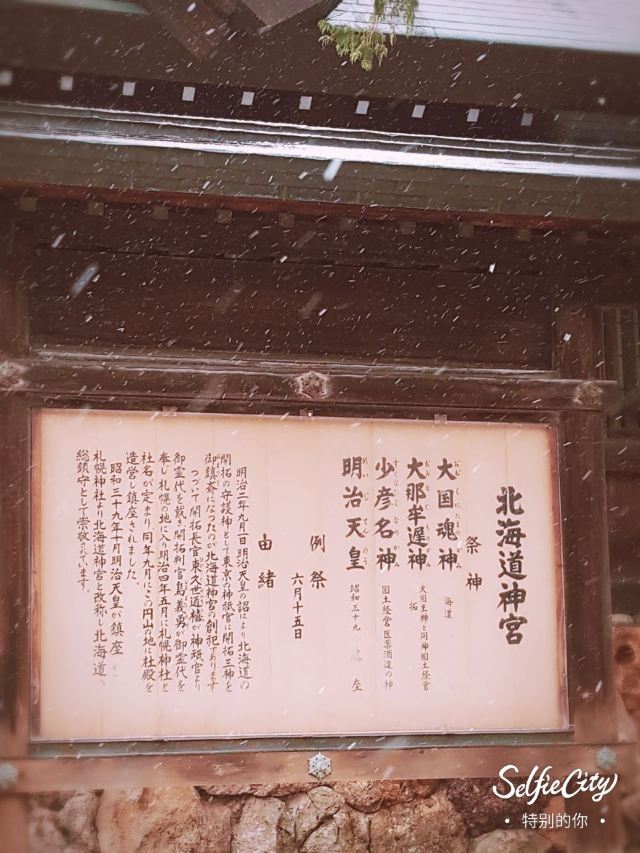 北海道神宮
祭神
大国魂神
おおくにたまのかみ
北海道
大那牟遅神
おおなむちのかみ
大国主神と同神国土経営
拓
少彦名神
すくなひこなのかみ
国土経営医薬酒造の神
明治天皇
めいじてんのう
昭和三十九 座
例祭
六月十五日
由緒
明治二年九月一日明治天皇の詔により北海道の
開拓の守護神として東京の神祇官に開拓三神を
御鎮斎になつたのが北海道神宮の創祀であります
つづいて開拓長官東久世通禧が神祇官より
御霊代を戴き開拓判官島義勇が御霊代を
奉じ札幌の地に入り明治四年五月に札幌神社と
社名が定まり同年九月にこの円山の地に社殿を
造営し鎮座されました。
昭和三十九年十月明治天皇が鎮座
札幌神社より北海道神宮と改称し北海道
総鎮守として崇敬されています。
SelfieCity
• 特别的你 •